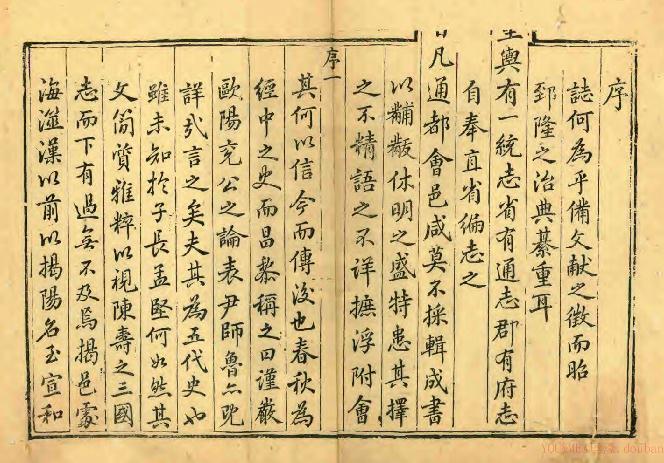 序
誌何為乎備文献之徵而昭
郅隆之治典綦重耳
輿有一統志省有通志郡有府志
自奉直省編志之
凡通都會邑咸莫不採輯成書
以黼黻休明之盛特患其擇
之不精語之不詳摭浮附會
序一
其何以信今而傳後也春秋為
經中之史而昌黎稱之曰謹嚴
歐陽兗公之論表尹師魯亦既
詳哉言之矣夫其為五代史也
雖未知於子長孟堅何如然其
文简質雅粹以視陳壽之三國
志而下有過無不及焉揭邑處
海澨漢以前以揭陽名至宣和
douban